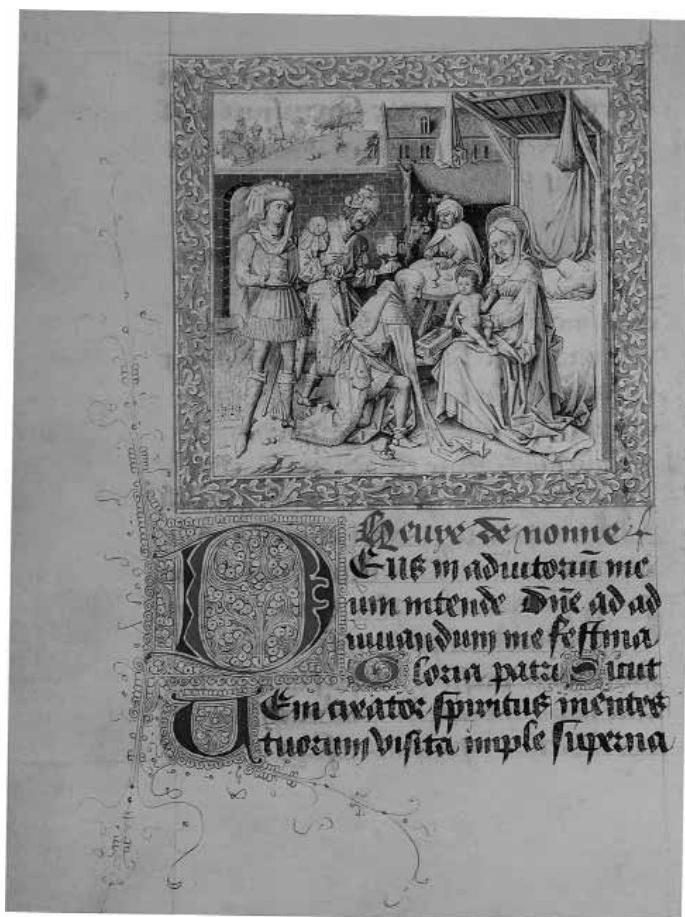 Heure de nonne
DEus in adiutoriū me
um intende Dn̄e ad ad
iuuandum me festina
Gloria patri Sicut
UEni creator spiritus mentes
tuorum visita imple superna